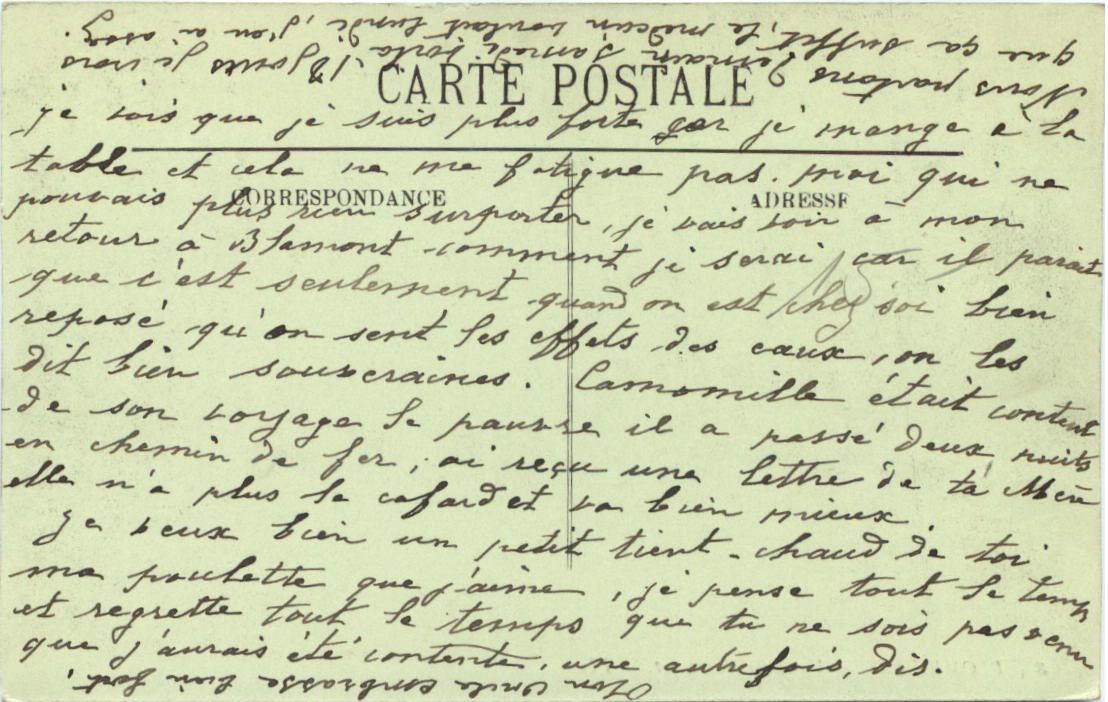 CARTE POSTALE
CORRESPONDANCE
ADRESSE
je vois que je suis plus forte car je mange à la
table et cela ne me fatigue pas. moi qui ne
pouvais plus rien surporter, je vais voir à mon
retour à Blamont comment je serai car il parait
que c'est seulement quand on est chez soi bien
reposé qu'on sent les effets des eaux, on les
dit bien souveraines. Camomille était content
de son voyage le pauvre il a passé deux nuits
en chemin de fer, ai reçu une lettre de ta Mère
elle n'a plus le cafard et va bien mieux.
Je veux bien un petit tient-chaud de toi
ma poulette que j'aime, je pense tout le temps
et regrette tout le temps que tu ne sois pas venu
que j'aurais été contente, une autre fois, dis.
Nous partons demain samedi voila 18 jours je crois
que ça suffit, le médecin voulait lundi, j'en ai assez.
Ton Oncle embrasse bien fort.